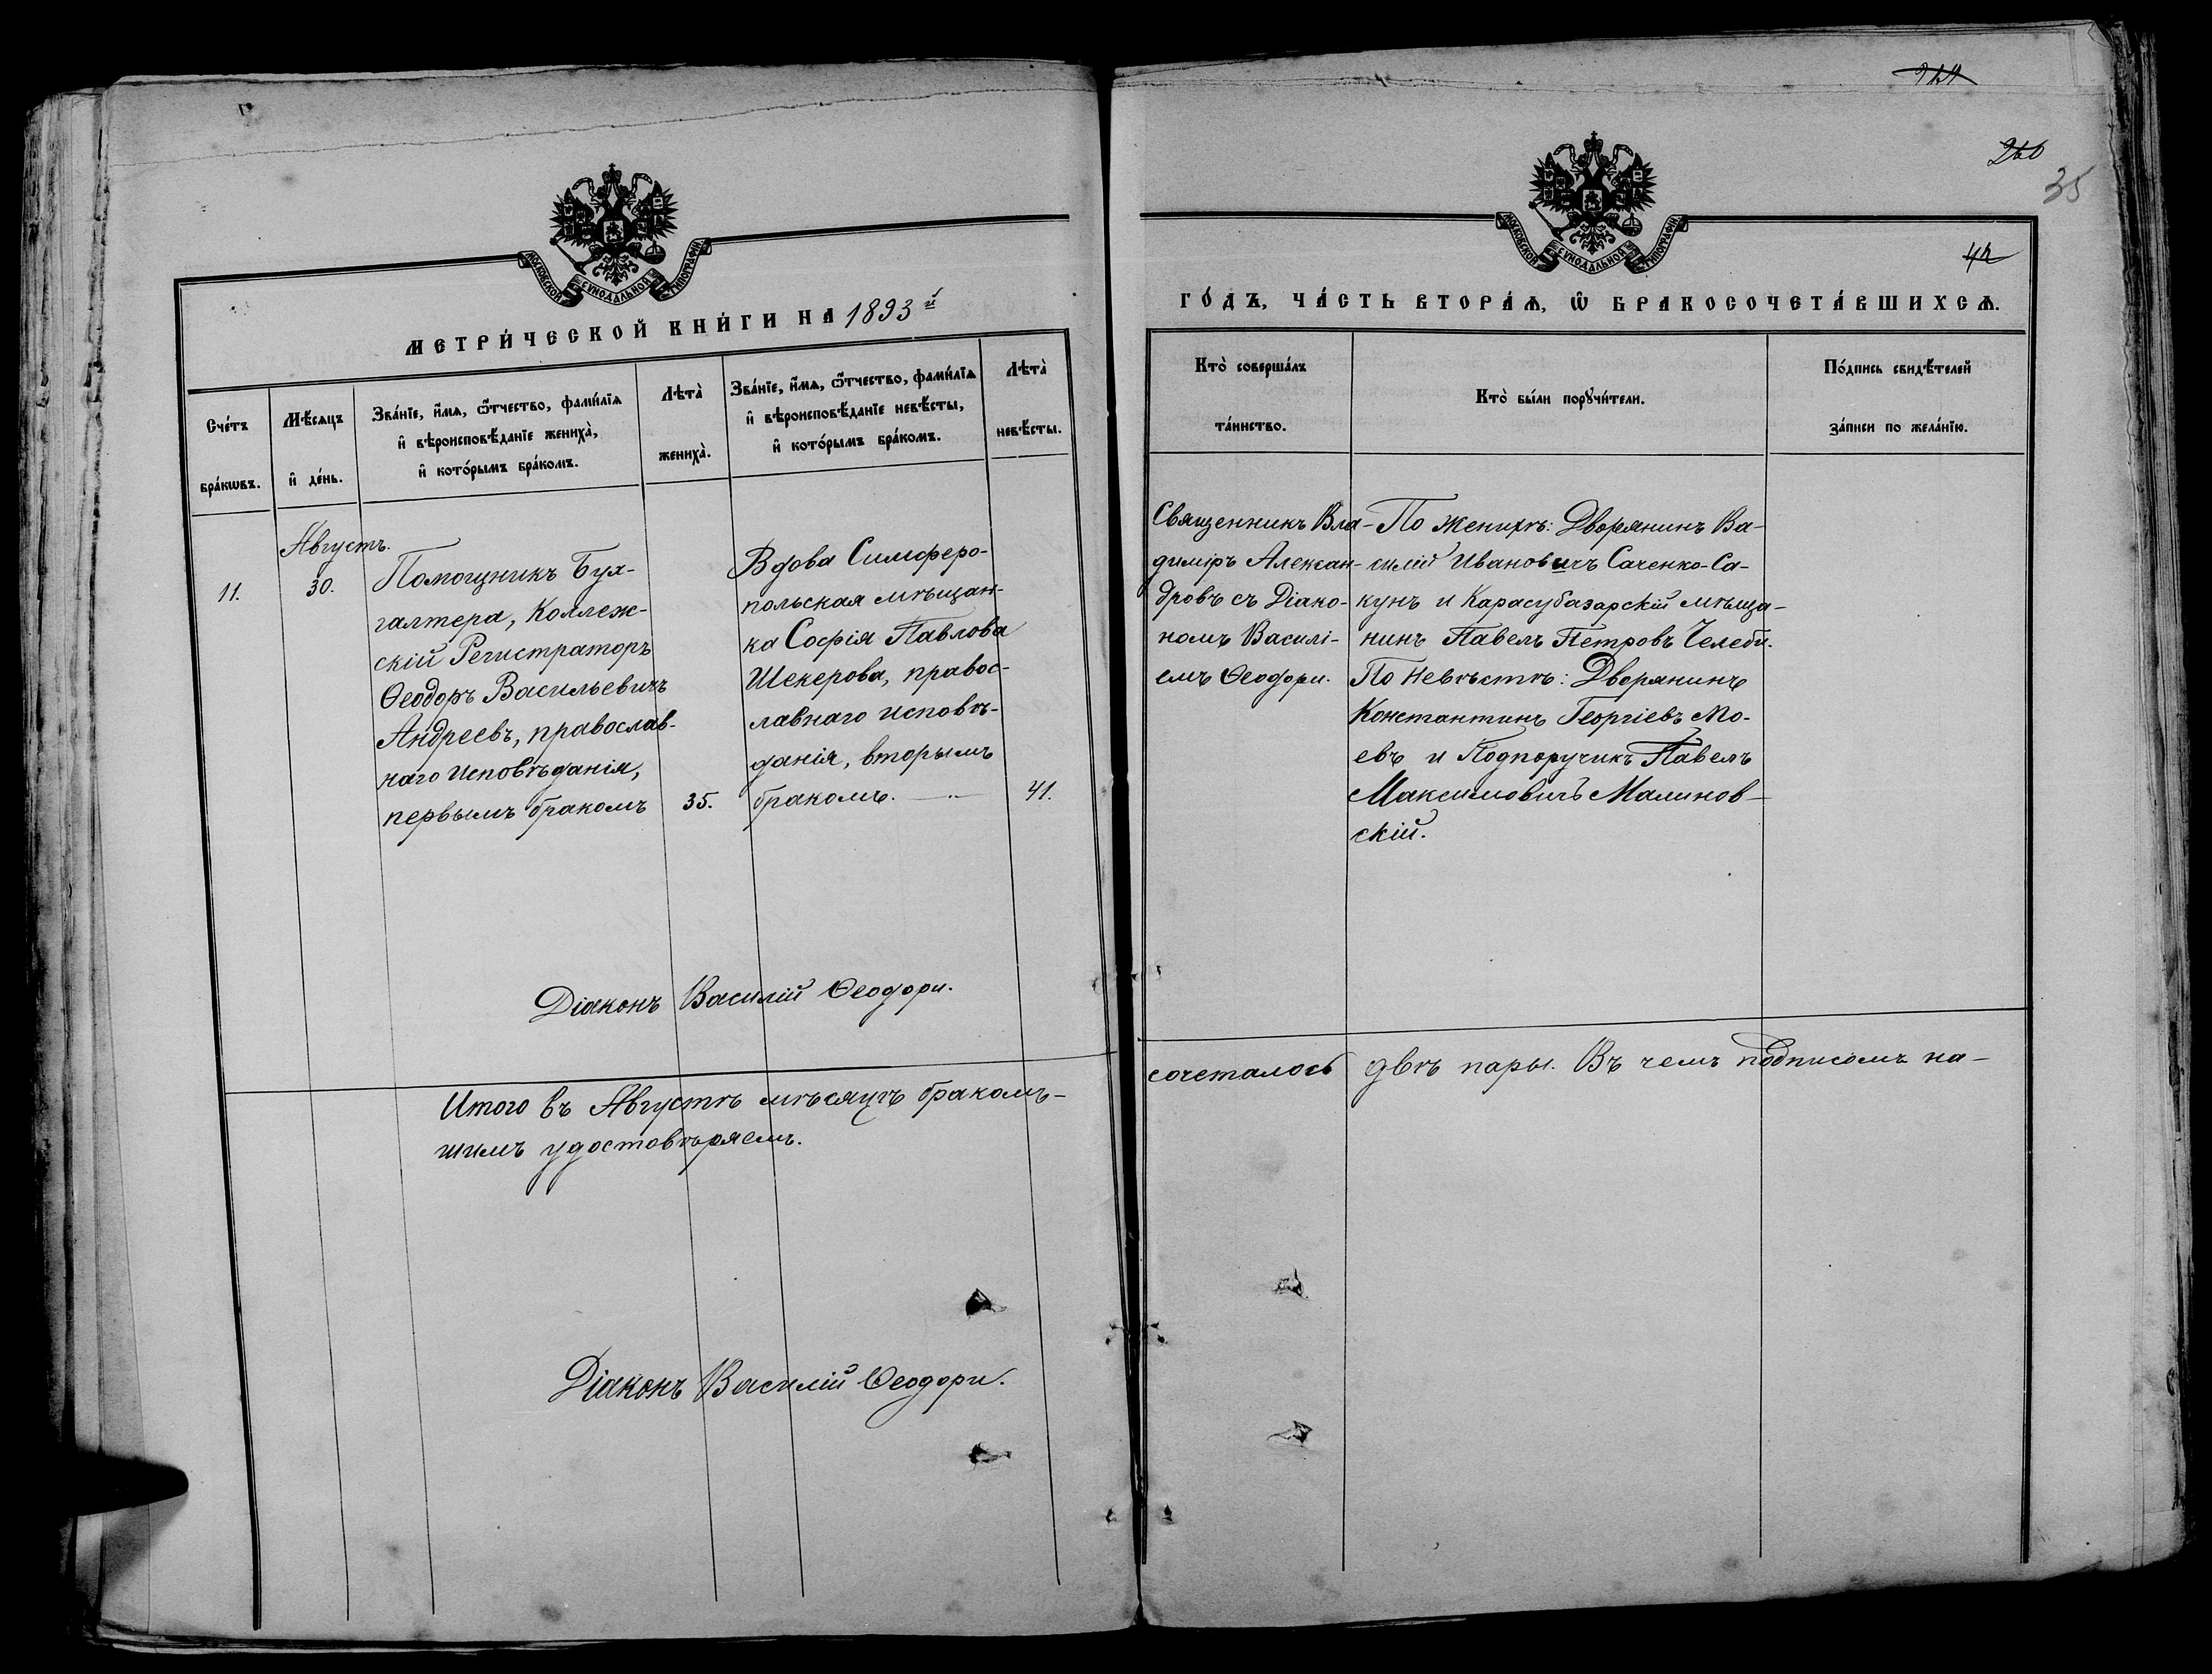 МЕТРИ́ЧЕСКОЙ КНИ́ГИ НА 1893й
Сче́тъ бра́кѡвъ.
Мѣ́сѧцъ и҆ де́нь.
Зва́нїе, и҆́мѧ, ѻ҆́тчество, фамѝлїѧ
и҆ вѣроисповѣ́данїе женихà,
и҆ кото́рымъ бра́комъ.
Лѣтà женихà.
Зва́нїе, и҆́мѧ, ѻ҆́тчество, фамѝлїѧ
и҆ вѣроисповѣ́данїе невѣ́сты,
и҆ кото́рымъ бра́комъ.
Лѣтà невѣ́сты.
11.
Августъ.
30.
Помощникъ Бух-
галтера, Коллеж-
скій Регистраторъ
Ѳеодоръ Васильевичъ
Андреевъ, православ-
наго исповѣданія,
первымъ бракомъ
35.
Вдова Симферо-
польская мѣщан-
ка Софія Павлова
Шекерова, правос-
лавнаго исповѣ-
данія, вторымъ
бракомъ.
41.
Діаконъ Василій Ѳеодори.
Итого въ Августѣ мѣсяцѣ бракомъ-
шимъ удостовѣряемъ.
Діаконъ Василій Ѳеодори.
260
35
42
ГО́ДЪ, ЧА́СТЬ ВТОРА́Ѧ, Ѡ҆ БРАКОСОЧЕТА́ВШИХСѦ.
Кто̀ соверша́лъ
та́инство.
Кто̀ бы́ли порꙋчи́тели.
По́дпись свидѣ́телей
за́писи по жела́нїю.
Священникъ Вла-
диміръ Алексан-
дровъ съ Діако-
номъ Василі-
емъ Ѳеодори.
По женихѣ: Дворянинъ Ва-
силій Ивановичъ Саченко-Са-
кунъ и Карасубазарскій мѣща-
нинъ Павелъ Петровъ Челеби.
По невѣстѣ: Дворянинъ
Константинъ Георгіевъ Мо-
евъ и Подпоручикъ Павелъ
Максимовичъ Малинов-
скій.
сочеталось двѣ пары. Въ чемъ подписомъ на-